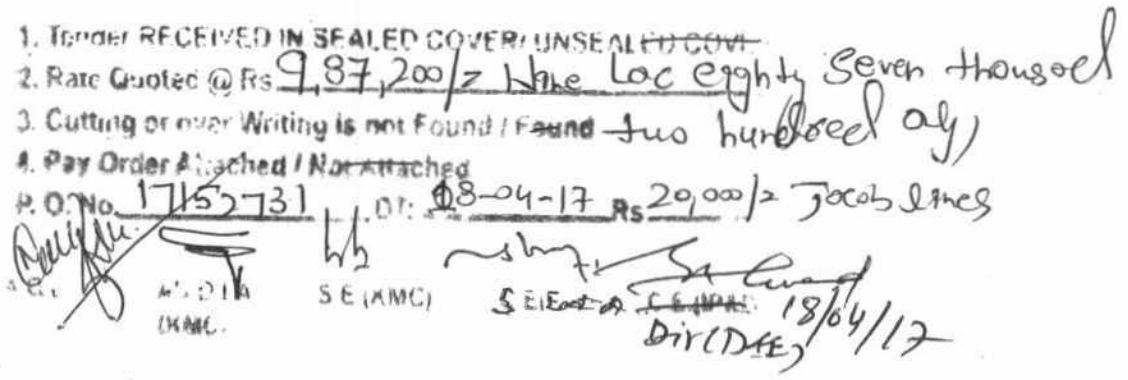 1. Tender RECEIVED IN SEALED COVER/ UNSEALED COVE
2. Rate Quoted @ Rs 9,87,200/= Nine Lac eighty Seven thousand
3. Cutting or over Writing is not Found / Found two hundred only
4. Pay Order Attached / Not Attached
P.O. No. 17152731 DT: 18-04-17 Rs 20,000/= Jacob lines
S E (KMC) S E (East 18/04/17
(KMC. Dir (